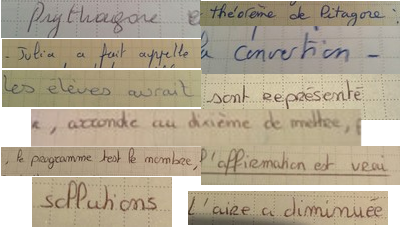 Prythagore
théorème de Pitagore :
- Julia, a fait appelle
la convertion -
Les élèves aurait
sont représenté
, arrondie au dixième de mettre,
, le programme test le nombre,
l'affirmation est vrai
sollutions
L'aire a diminuée